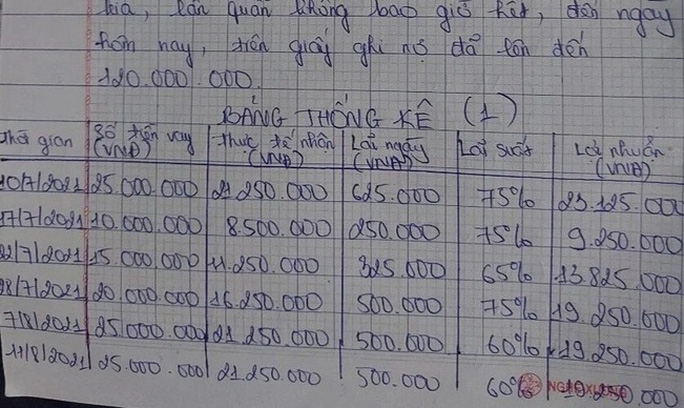 kia, lẩn quẩn không bao giờ hết, đến ngay
hôm nay, tiền giấy ghi nợ đã lên đến
120.000.000.
BẢNG THỐNG KÊ (1)
Thời gian | Số tiền vay (VNĐ) | Thực tế nhận (VNĐ) | Lãi ngày (VNĐ) | Lãi suất | Lợi nhuận (VNĐ)
10/7/2021 | 25.000.000 | 21.250.000 | 625.000 | 75% | 23.125.000
17/7/2021 | 10.000.000 | 8.500.000 | 250.000 | 75% | 9.250.000
22/7/2021 | 15.000.000 | 11.250.000 | 325.000 | 65% | 13.825.000
28/7/2021 | 20.000.000 | 16.250.000 | 500.000 | 75% | 19.250.000
7/8/2021 | 25.000.000 | 21.250.000 | 500.000 | 60% | 19.250.000
11/8/2021 | 25.000.000 | 21.250.000 | 500.000 | 60% | 19.250.000